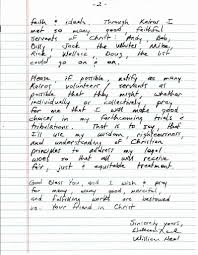 - 2 -
faith & ideals. Through Kairos I
met so many good, faithful
servants of Christ: Andy, Bob,
Billy, Jack, the Whites, Mike,
Rick, Wallace, Doug, the list
could go on & on.
Please if possible, notify as many
Kairos volunteers / servants as
possible that they might, whether
individually or collectively, pray
for me that I will make good
choices in my forthcoming trials &
tribulations. That is to say, that
I'll use my wisdom, righteousness,
and understanding of Christian
principles to address my legal
woes so that all will receive
fair, just & equitable treatment.
God Bless You, and I wish & pray
for many, many good, merciful
and fulfilling works are bestowed
Your friend in Christ
Sincerely yours,
William